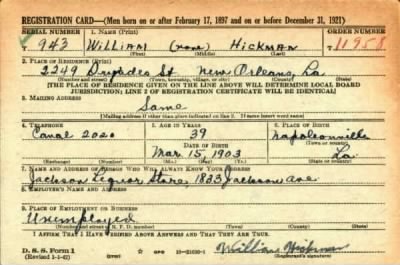 REGISTRATION CARD—(Men born on or after February 17, 1897 and on or before December 31, 1921)
SERIAL NUMBER 1. NAME (Print) ORDER NUMBER
943 William (none) Hickman 11958
(First) (Middle) (Last)
2. PLACE OF RESIDENCE (Print)
2249 Dryades St New Orleans, La
(Number and street) (Town, township, village, or city) (County) (State)
[THE PLACE OF RESIDENCE GIVEN ON THE LINE ABOVE WILL DETERMINE LOCAL BOARD
JURISDICTION; LINE 2 OF REGISTRATION CERTIFICATE WILL BE IDENTICAL]
3. MAILING ADDRESS
Same
[Mailing address if other than place indicated on line 2. If same insert word same]
4. TELEPHONE 5. AGE IN YEARS 6. PLACE OF BIRTH
Canal 2020 39 Napoleonville
DATE OF BIRTH (Town or county)
Mar. 15 1903 La
(Exchange) (Number) (Mo.) (Day) (Yr.) (State or country)
7. NAME AND ADDRESS OF PERSON WHO WILL ALWAYS KNOW YOUR ADDRESS
Jackson Liquor Store, 1833 Jackson Ave
8. EMPLOYER'S NAME AND ADDRESS
9. PLACE OF EMPLOYMENT OR BUSINESS
Unemployed
(Number and street or R. F. D. number) (Town) (County) (State)
I AFFIRM THAT I HAVE VERIFIED ABOVE ANSWERS AND THAT THEY ARE TRUE.
D. S. S. Form 1
(Revised 1-1-42) (over) 16—21630-1
William Hickman
(Registrant's signature)